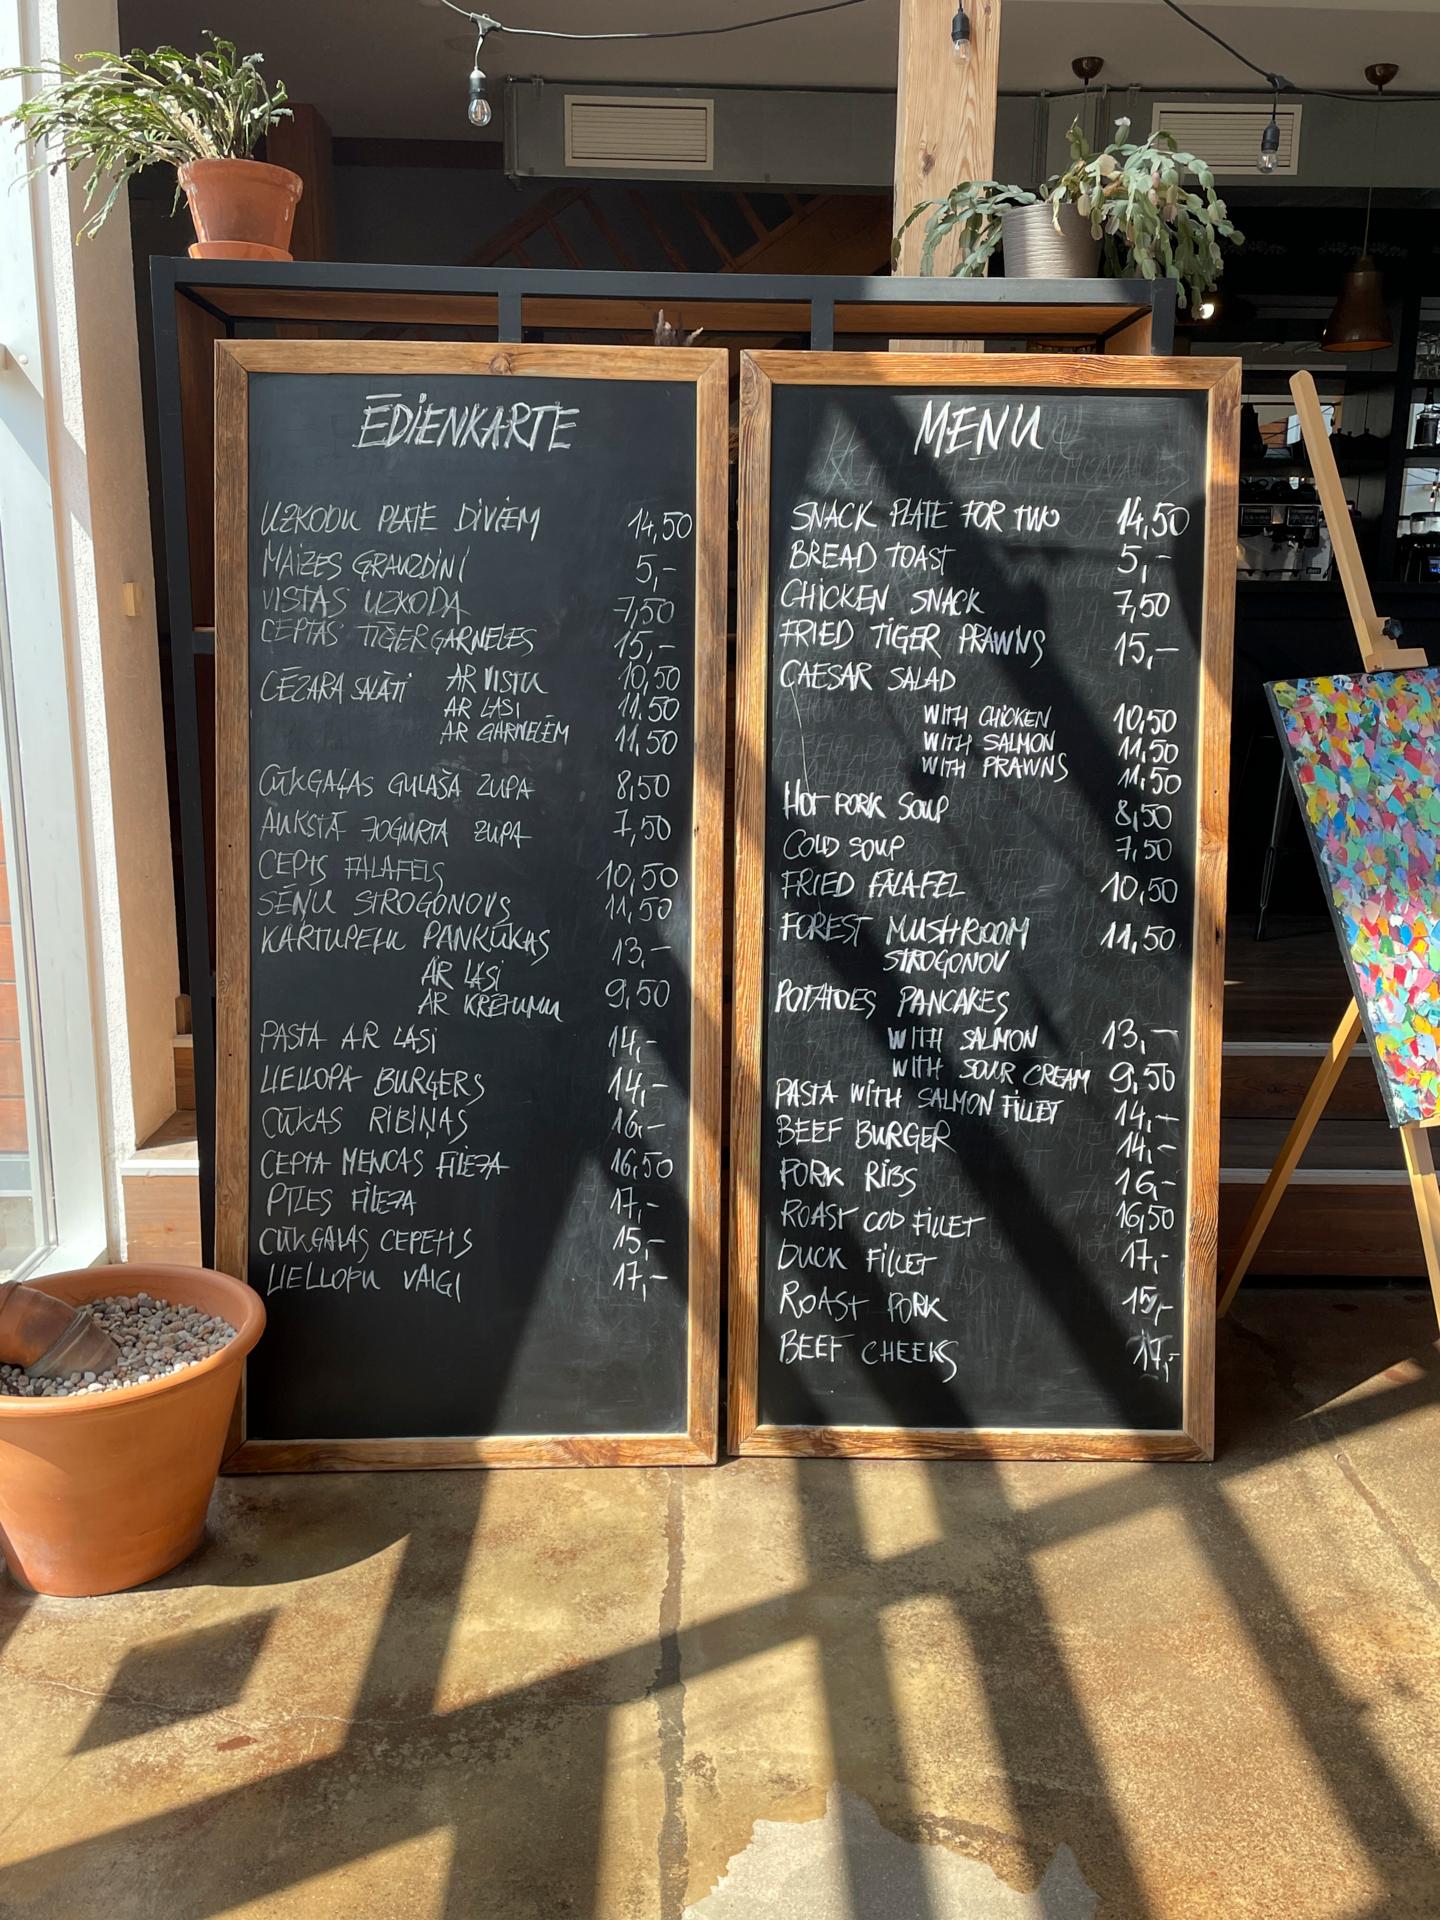 ĒDIENKARTE
UZKODU PLATE DIVIEM 14,50
MAIZES GRAUZDIŅI 5,-
VISTAS UZKODA 7,50
CEPTAS TĪĢERGARNELES 15,-
CĒZARA SALĀTI AR VISTU 10,50
AR LASI 11,50
AR GARNELĒM 11,50
CŪKGAĻAS GULAŠA ZUPA 8,50
AUKSTĀ JOGURTA ZUPA 7,50
CEPTS FALAFELS 10,50
SĒŅU STROGONOVS 11,50
KARTUPEĻU PANKŪKAS 13,-
AR LASI
AR KRĒJUMU 9,50
PASTA AR LASI 14,-
LIELLOPA BURGERS 14,-
CŪKAS RIBIŅAS 16,-
CEPTA MENCAS FILEJA 16,50
PĪLES FILEJA 17,-
CŪKGAĻAS CEPETIS 15,-
LIELLOPU VAIGI 17,-
MENU
SNACK PLATE FOR TWO 14,50
BREAD TOAST 5,-
CHICKEN SNACK 7,50
FRIED TIGER PRAWNS 15,-
CAESAR SALAD
WITH CHICKEN 10,50
WITH SALMON 11,50
WITH PRAWNS 11,50
HOT PORK SOUP 8,50
COLD SOUP 7,50
FRIED FALAFEL 10,50
FOREST MUSHROOM 11,50
STROGONOV
POTATOES PANCAKES
WITH SALMON 13,-
WITH SOUR CREAM 9,50
PASTA WITH SALMON FILLET 14,-
BEEF BURGER 14,-
PORK RIBS 16,-
ROAST COD FILLET 16,50
DUCK FILLET 17,-
ROAST PORK 15,-
BEEF CHEEKS 17,-